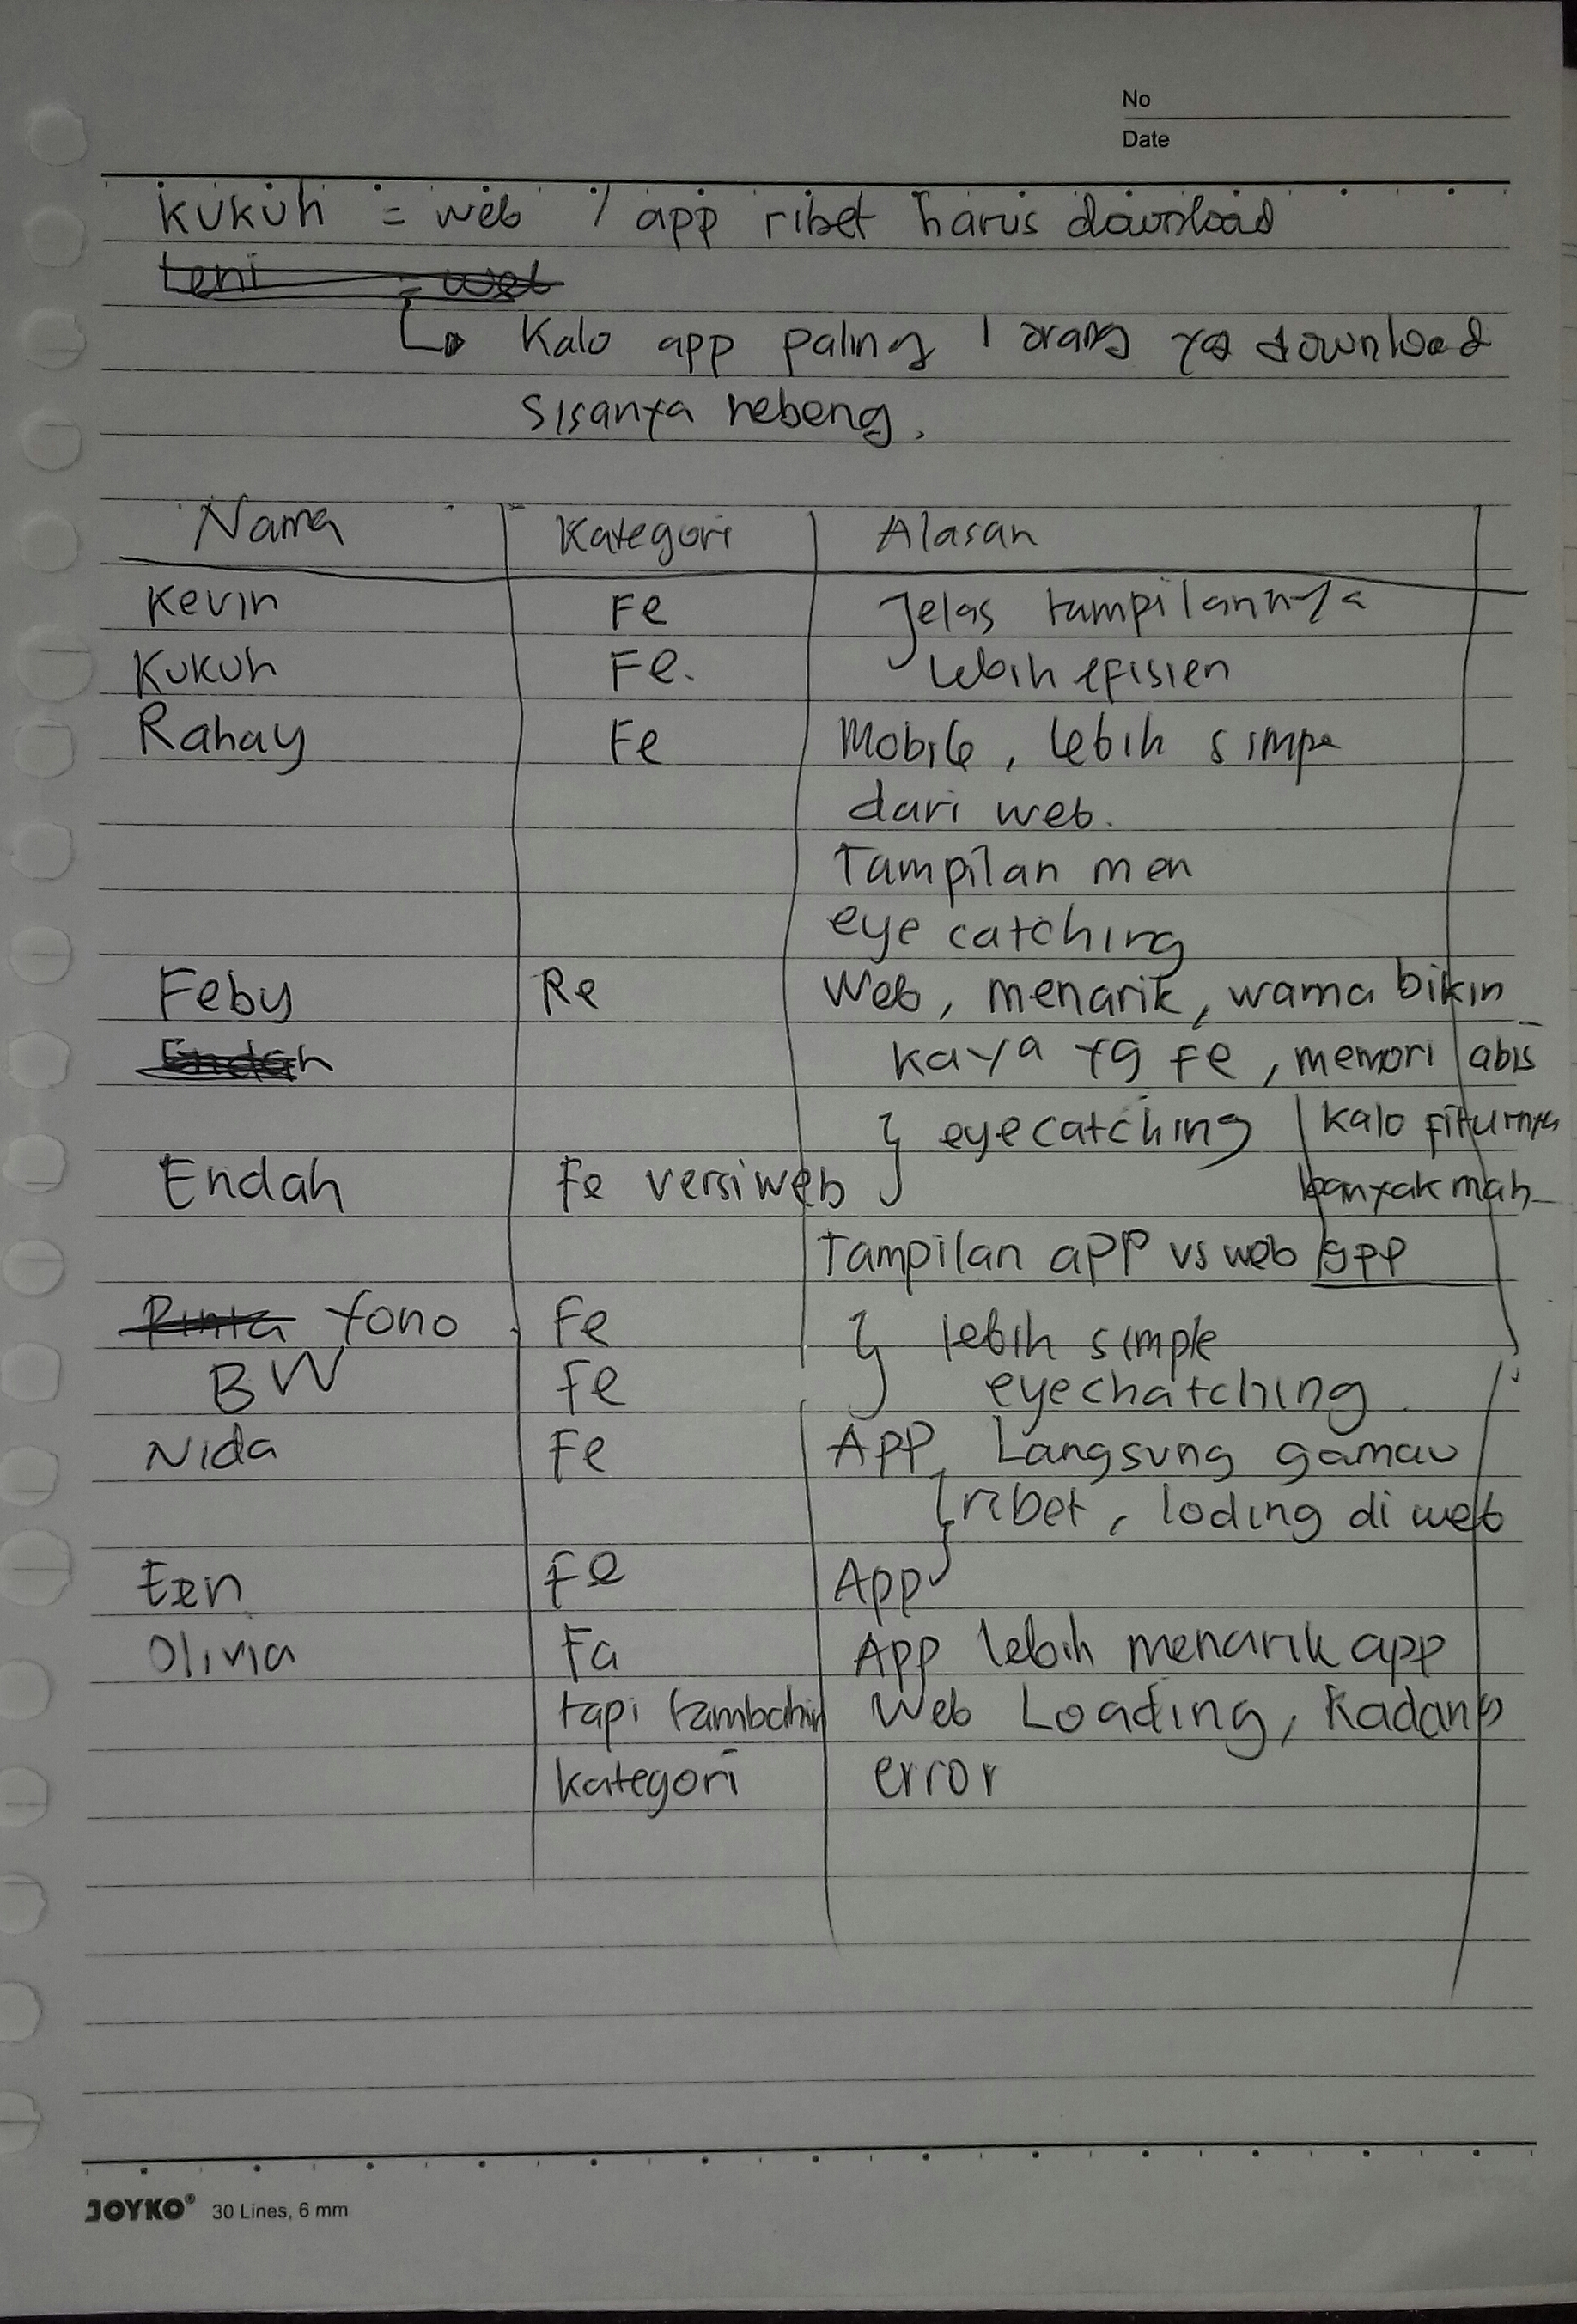 No
Date
Kukuh = web / app ribet harus download
Leni = web
Kalo app paling 1 orang yg download
sisanya nebeng.
Nama Kategori Alasan
Kevin Fe Jelas tampilannya
Kukuh Fe. lebih efisien
Rahay Fe Mobile, lebih simpe
dari web.
Tampilan men
eye catching
Feby Re Web, menarik, warna bikin
Endah kaya yg Fe, memori abis
eyecatching kalo fiturnya
Endah Fe versi web banyak mah
Tampilan app vs web gpp
Rinta Yono Fe lebih simple
BW Fe eyechatching
Nida Fe App, Langsung gamau
ribet, loding di web
Fe App
Olivia Fa App lebih menarik app
tapi tambahin Web Loading, Kadang
kategori error
JOYKO® 30 Lines, 6 mm